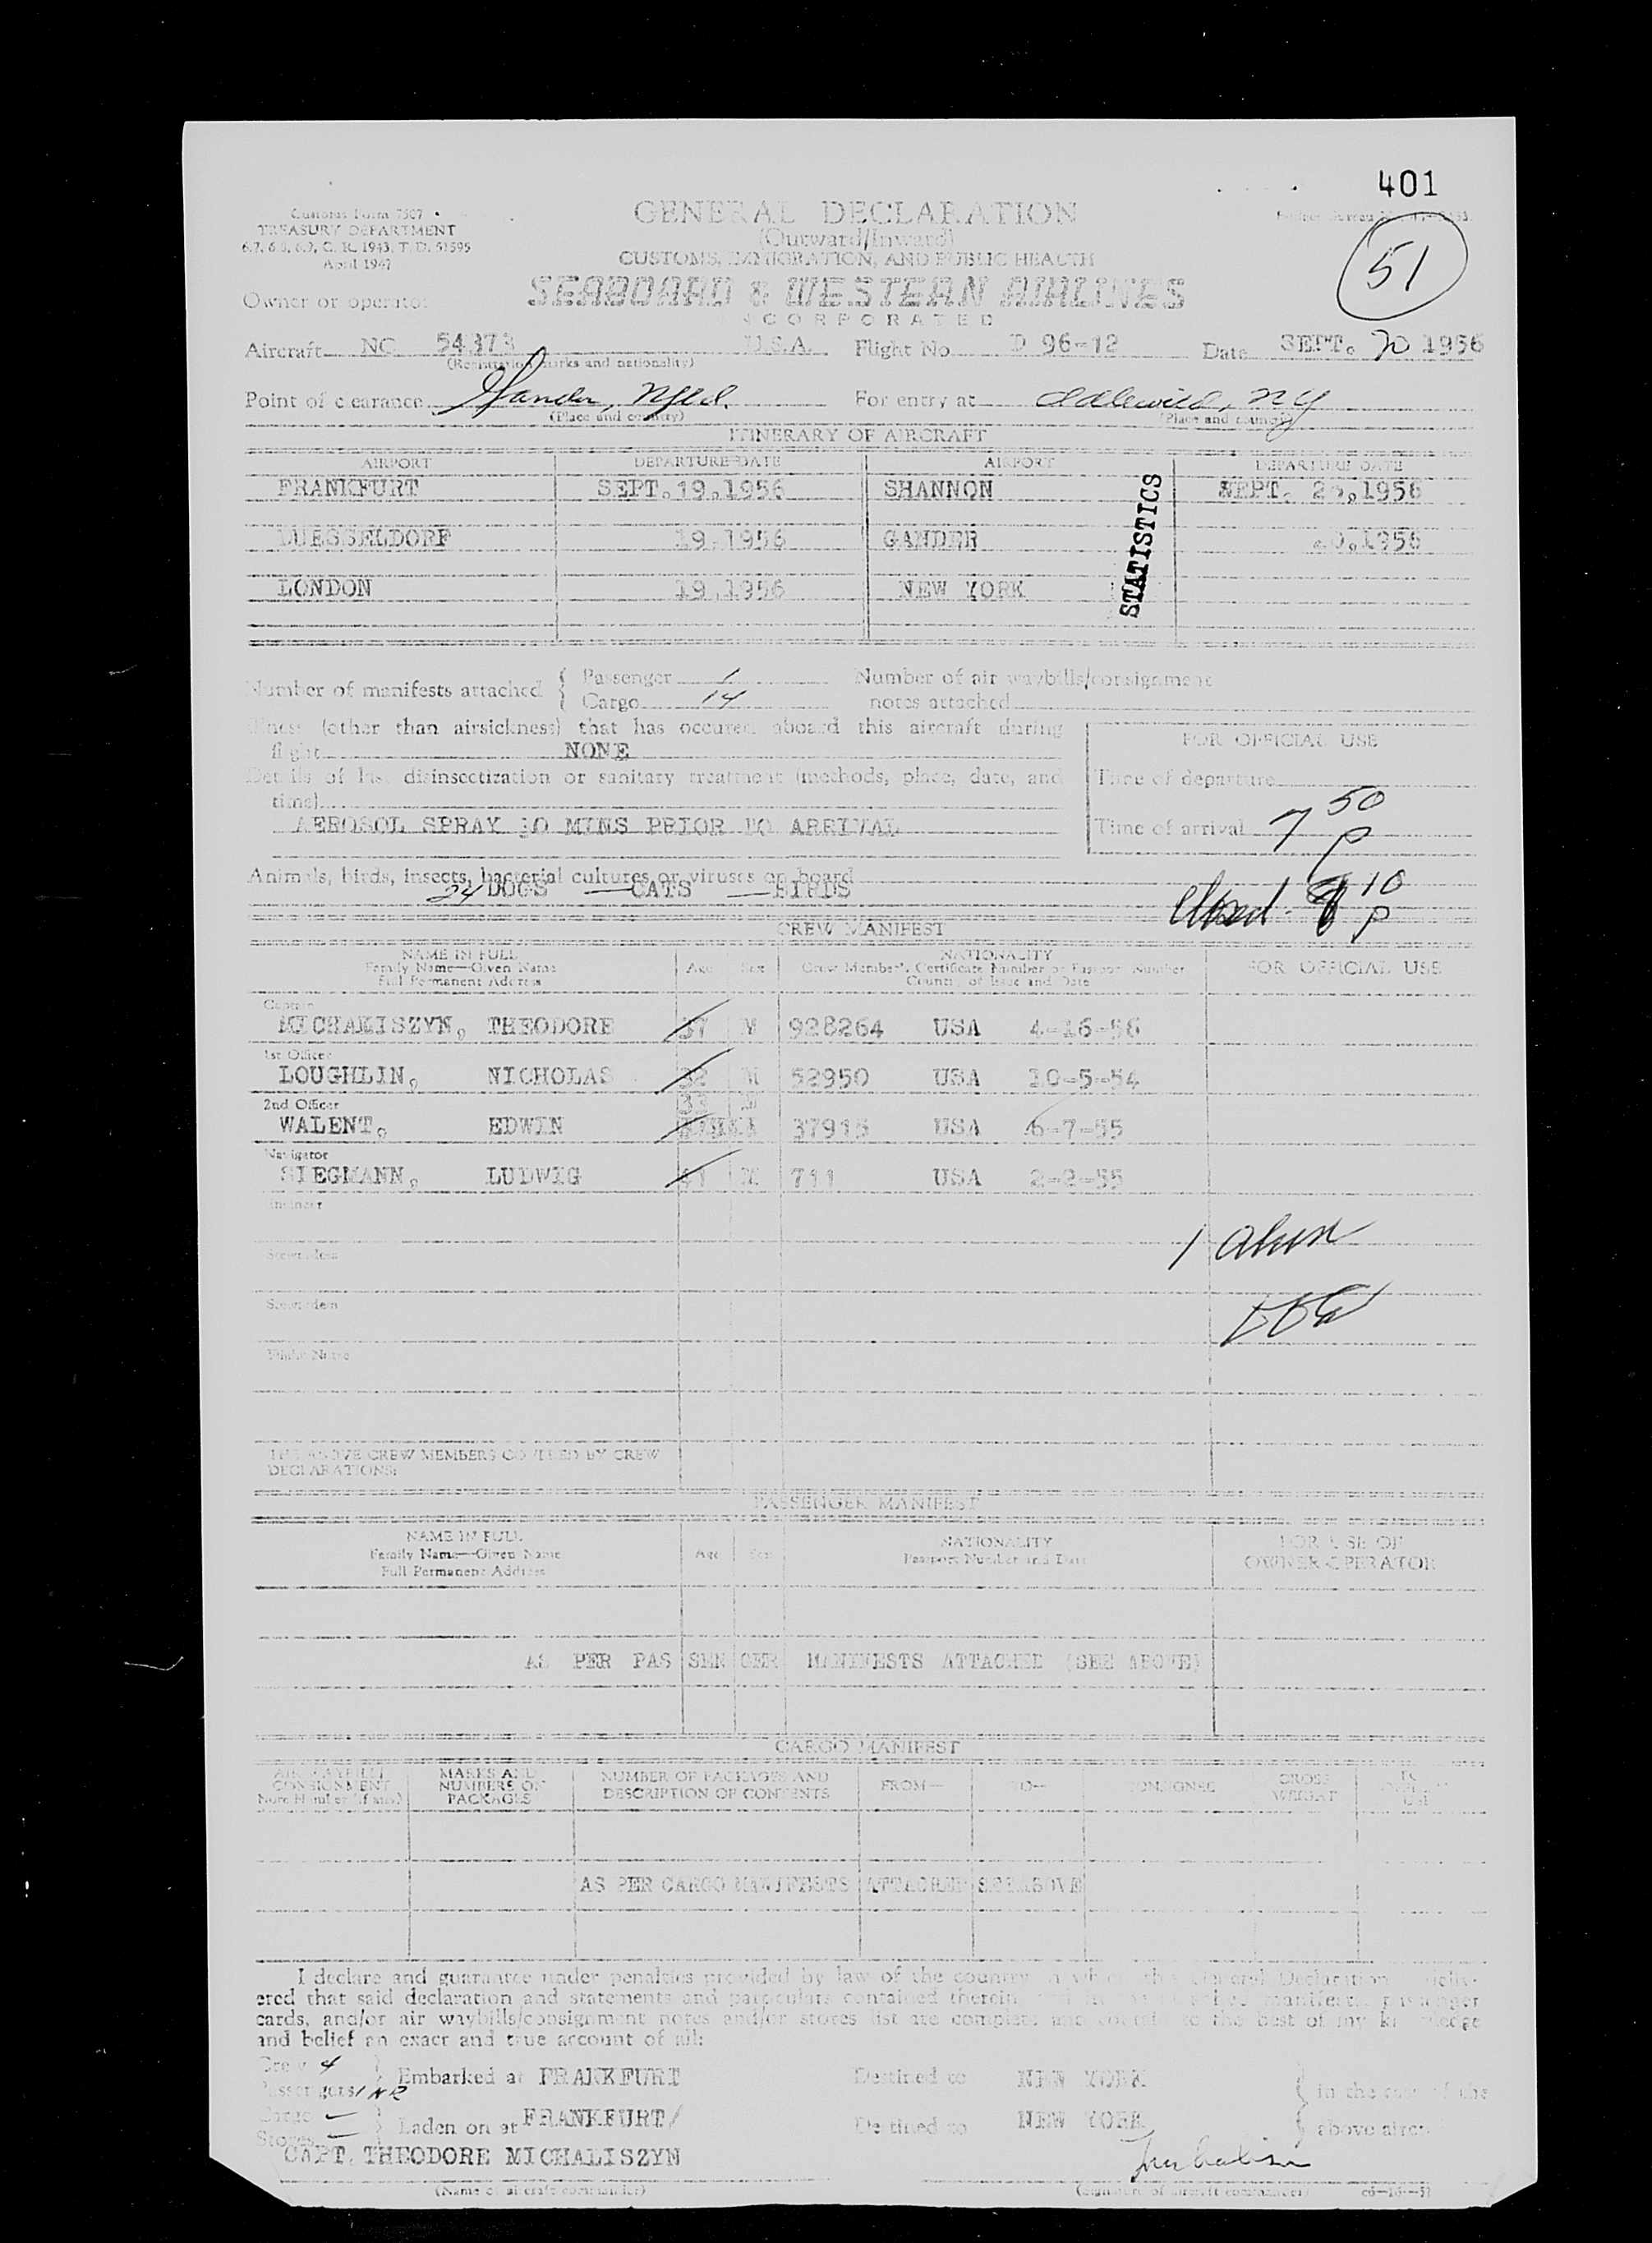 401
Customs Form 7507
TREASURY DEPARTMENT
6.7, 6.8, 6.9, C. R. 1943, T. D. 51595
April 1947
GENERAL DECLARATION
(Outward/Inward)
CUSTOMS, IMMIGRATION, AND PUBLIC HEALTH
51
Owner or operator
SEABOARD & WESTERN AIRLINES
INCORPORATED
Aircraft NC 54373 U.S.A. Flight No. D 96-12 Date SEPT. 20 1956
(Registration marks and nationality)
Point of clearance Gander, Nfld. For entry at Idlewild, NY
(Place and country) (Place and country)
ITINERARY OF AIRCRAFT
AIRPORT DEPARTURE DATE AIRPORT DEPARTURE DATE
FRANKFURT SEPT.19.1956 SHANNON SEPT. 20,1956
DUESSELDORF 19.1956 GANDER 20,1956
LONDON 19.1956 NEW YORK
STATISTICS
Number of manifests attached { Passenger 1 Number of air waybills/consignment
Cargo 14 notes attached
Illness (other than airsickness) that has occured aboard this aircraft during
flight NONE
FOR OFFICIAL USE
Details of last disinsectization or sanitary treatment (methods, place, date, and
time)
Time of departure
AEROSOL SPRAY 30 MINS PRIOR TO ARRIVAL
Time of arrival 7 50 P
Animals, birds, insects, bacterial cultures or viruses on board
24 DOGS — CATS — BIRDS
Closed 10 P
CREW MANIFEST
NAME IN FULL
Family Name—Given Name
Full Permanent Address
Age Sex
NATIONALITY
Crew Member's Certificate Number or Passport Number
Country of Issue and Date
FOR OFFICIAL USE
Captain
MICHALISZYN, THEODORE 37 M 928264 USA 4-16-56
1st Officer
LOUGHLIN, NICHOLAS 32 M 52950 USA 10-5-54
2nd Officer
33 M
WALENT, EDWIN 37915 USA 6-7-55
Navigator
SIEGMANN, LUDWIG 41 M 711 USA 2-2-55
Engineer
1 alien
Flight Nurse
THE ABOVE CREW MEMBERS COVERED BY CREW
DECLARATIONS:
PASSENGER MANIFEST
NAME IN FULL
Family Name—Given Name
Full Permanent Address
Age Sex
NATIONALITY
Passport Number and Date
FOR USE OF
OWNER-OPERATOR
AS PER PASSENGER MANIFESTS ATTACHED (SEE ABOVE)
CARGO MANIFEST
AIR WAYBILL
CONSIGNMENT
Note Number (if any)
MARKS AND
NUMBERS ON
PACKAGES
NUMBER OF PACKAGES AND
DESCRIPTION OF CONTENTS
FROM— TO— CONSIGNEE
GROSS
WEIGHT
AS PER CARGO MANIFESTS ATTACHED SEE ABOVE
I declare and guarantee under penalties provided by law of the country in which this General Declaration is deliv-
ered that said declaration and statements and particulars contained therein attached manifest, passenger
cards, and/or air waybills/consignment notes and/or stores list are complete and contain to the best of my knowledge
and belief an exact and true account of all:
Crew 4
Passengers 1 NR } Embarked at FRANKFURT Destined to NEW YORK { in the case of the
Cargo —
Stores — } Laden on at FRANKFURT/ Destined to NEW YORK { above aircraft
CAPT. THEODORE MICHALISZYN
(Name of aircraft commander) (Signature of aircraft commander)